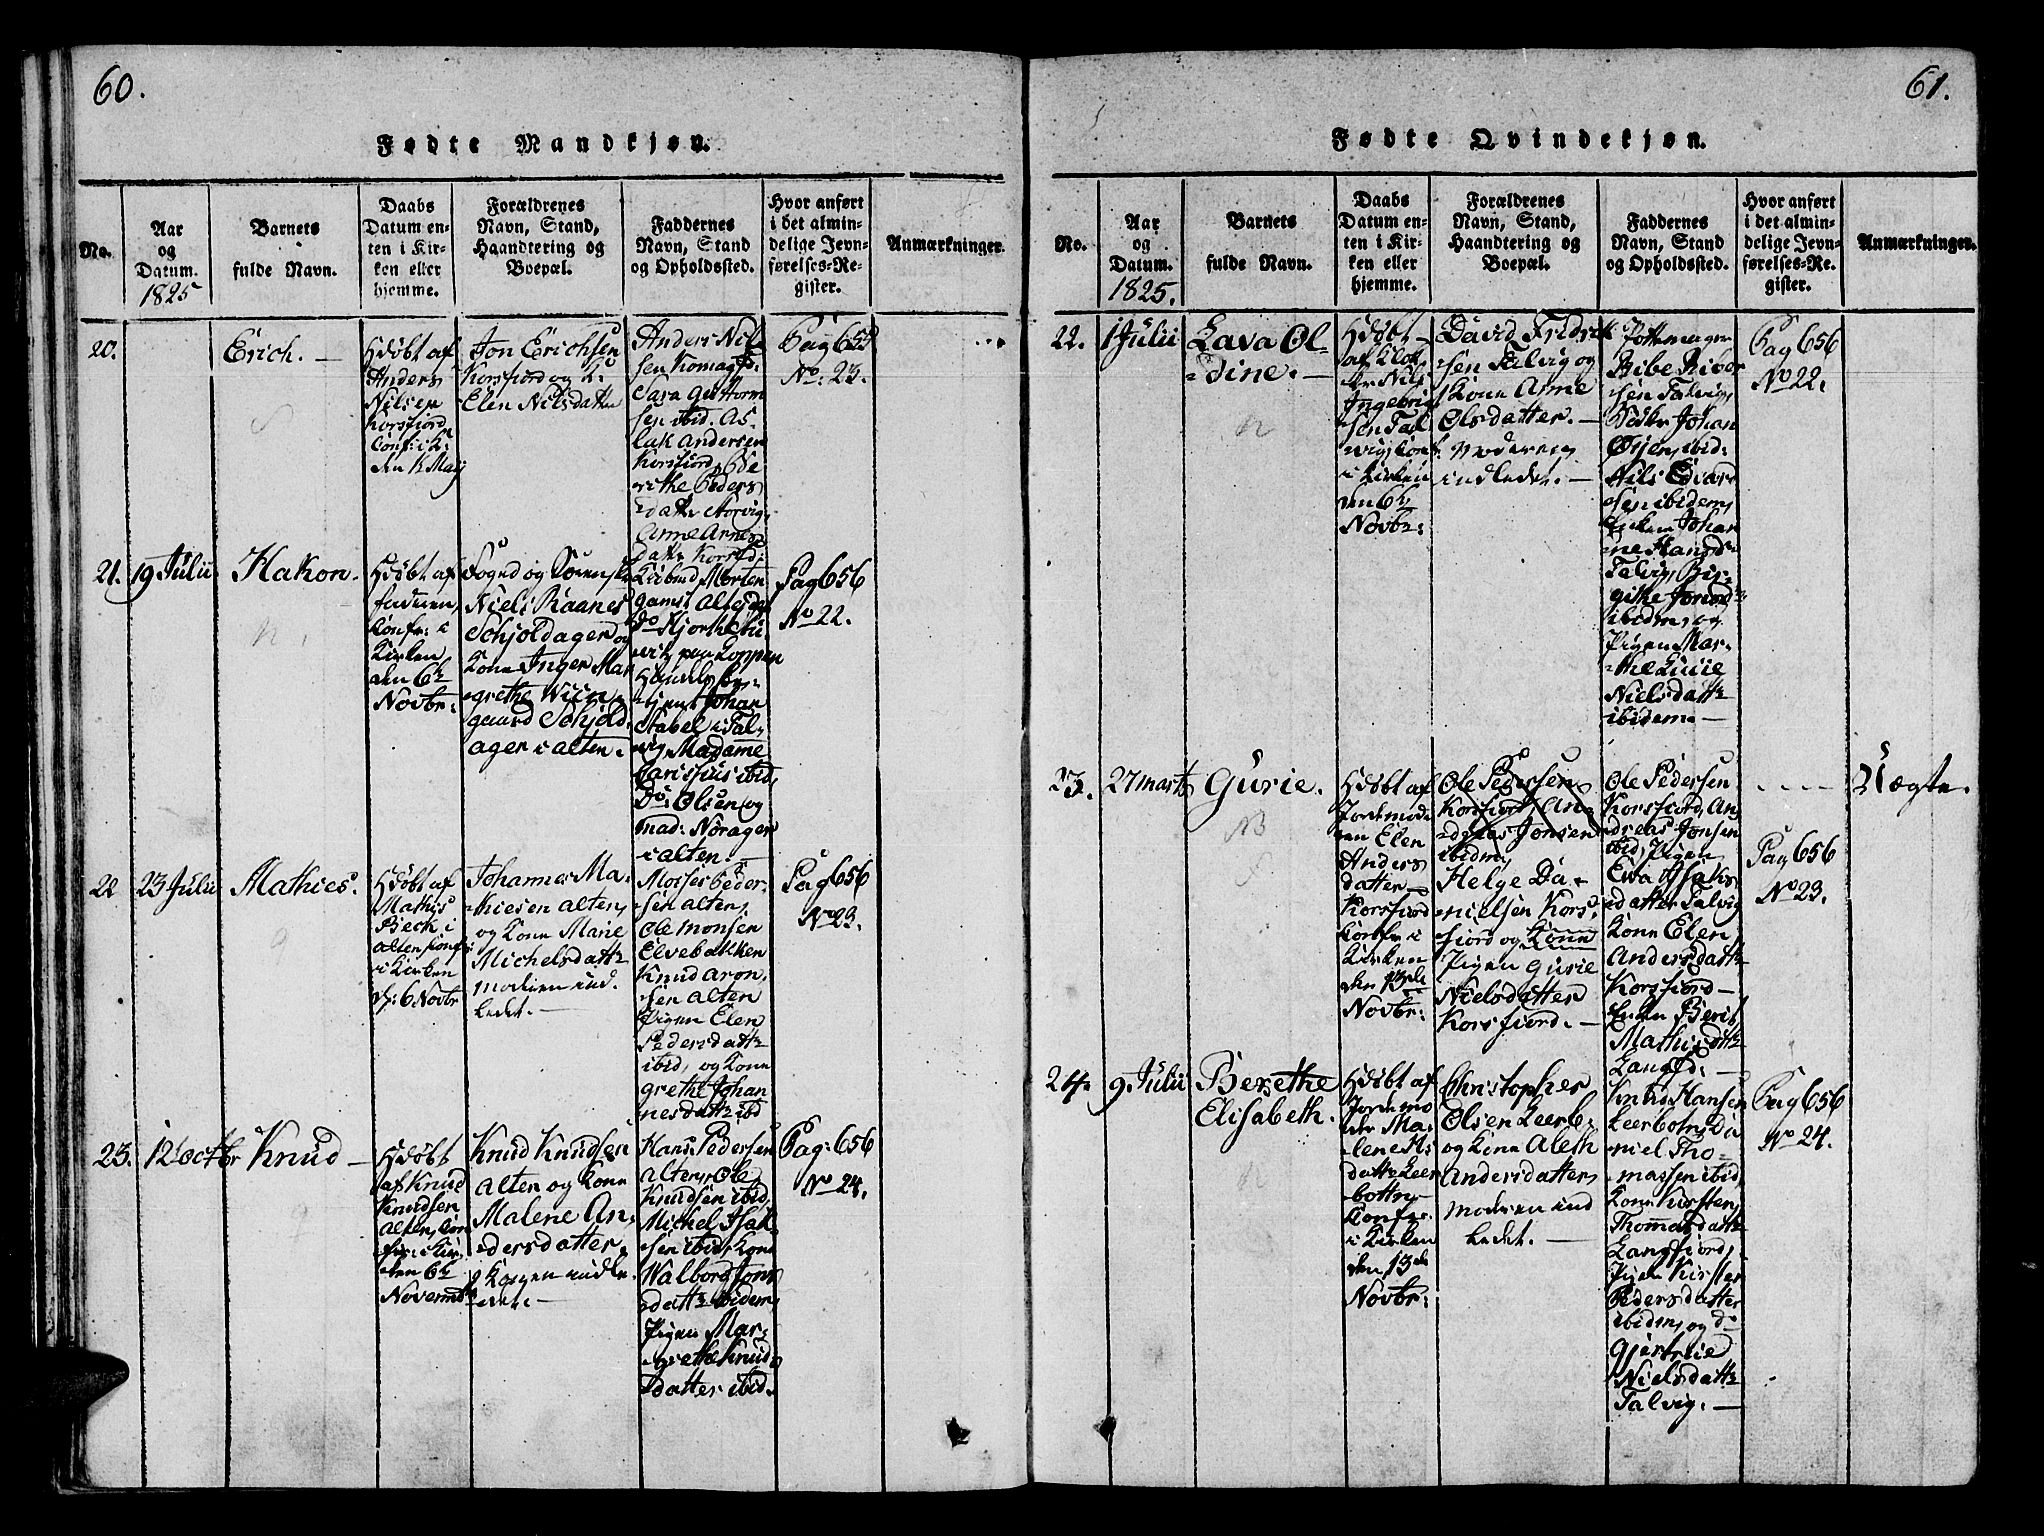 60.
Fødte Mandkjøn.
No.
Aar
og
Datum.
1825
Barnets
fulde Navn.
Daabs
Datum en-
ten i Kir-
ken eller
hjemme.
Forældrenes
Navn, Stand,
Haandtering og
Boepæl.
Faddernes
Navn, Stand
og Opholdssted.
Hvor anført
i det almin-
delige Jevn-
førelses-Re-
gister.
Anmærkninger.
20.
Erich. —
Hdøbt af
Anders
Nilsen
Korsfiord
Conf: i K:
den
Jon Erichsen
Korsfiord og K:
Elen Nilsdatter
Anders Nil
sen Komagfd.
Sara Guttorm
sen ibid. As-
lak Andersen
Korsfiord,
rithe Peders
datter Storvig,
Anne Arnes
datr Korsfd:
Pag 655
No: 23.
21.
19 Julii
Hakon.
Hdøbt af
Faderen,
Confr: i
Kirken
den 6te
Novbr:
Foged og Sorensk
Niels Raanes
Schjoldager og
Kone Inger Mar
grethe Wiin-
gaard Schjold-
ager i Alten.
Morten
Altes
Do Hjorth
paa Koppen
Handels be-
tjent Johan
Stabel i Tal-
vig, Madame
Clarissius ibid,
Do: Olsen og
Mad: Norager
i Alten. —
Pag 656
No 22.
22
23 Julii
Mathies.
Hdøbt af
Mathis
Beck i
Alten Conf:
i Kirken
d: 6 Novbr
Johannes Ma-
thiesen Alten,
og Kone Marie
Michelsdattr
Moderen ind-
ledet. —
Moses Peder-
sen Alten,
Ole Monsen
Elvebakken
Knud Aron-
sen Alten
Pigen Elen
Pedersdattr
ibid, og Kone
Grethe Johan
nesdattr ibid
Pag 656
No 23.
23.
12 Octbr
Knud —
Hdøbt
af Knud
Knudsen
Alten, Con
fir: i Kir,
den 6te
Novembr
Knud Knudsen
Alten og Kone
Malene An-
dersdatter,
Konen indle-
det. —
Hans Pedersen
Alten, Ole
Knudsen ibid,
Michel Isak
sen ibid, Kone
Walbor Jons
dattr ibidem,
Pigen Mar-
grethe Knud
datter ibid.
Pag: 656
No 24.
61.
Fødte Qvindekjøn.
No.
Aar
og
Datum.
1825.
Barnets
fulde Navn.
Daabs
Datum en-
ten i Kir-
ken eller
hjemme.
Forældrenes
Navn, Stand,
Haandtering og
Boepæl.
Faddernes
Navn, Stand
og Opholdssted.
Hvor anført
i det almin-
delige Jevn-
førelses-Re-
gister.
Anmærkninger.
22.
1 Julii
Lava Ol-
dine. —
Hdøbt
af Klok
ker Nils
Ingebrigt
sen Tal
vig, Conf:
i Kirken
den 6te
Novbr:
David Fridrik
sen Talvig og
Kone Anne
Olsdatter. —
Moderen
indledet. —
Ribe Riber
sen Talvig,
Johan
Olsen, ibid:
Nils Edvard
sen ibidem,
Enken Johan
ne Hansd:
Talvig, Bir-
githe Jonsd
ibidm, og
Pigen Mar-
the Lucie
Nielsdattr
ibidem. —
Pag 656
No 22.
23.
27 Marts
Gurie.
Hdøbt af
Jordemode
ren Elen
Anders
datter
Korsfiord
Confr: i
Kirken
den 13de
Novbr:
Ole Pedersen
Korsfiord An-
dreas Jonsen
ibidm,
Helge Da-
nielsen Kors-
fiord og Kone
Pigen Gurie
Nielsdatter
Korsfiord. —
Ole Pedersen
Korsfiord, An
dreas Jonsen
ibid, Pigen
Ewa Isaks
datter Talvig
Kone Elen
Andersdattr
Korsfiord —
Enken Berit
Mathisdttr
Langfd: —
Pag 656
No 23.
Uægte.
24.
9 Julii
Berethe
Elisabeth.
Hdøbt af
Jordemo
der Ma-
lene
dattr Leer
bottn,
Confr:
i Kirken
den 13de
Novbr:
Christopher
Olsen Leerb:
og Kone Aleth
Andersdatter,
Moderen ind
ledet. —
Knud Hansen
Leerbotn, Da
niel Tho-
massen ibid,
Kone Kirsten
Thomasdattr
Langfiord,
Pigen Kirsten
Pedersdatter
ibidm, og do
Gjertrue
Nielsdattr
Talvig. —
Pag 656
No 24.